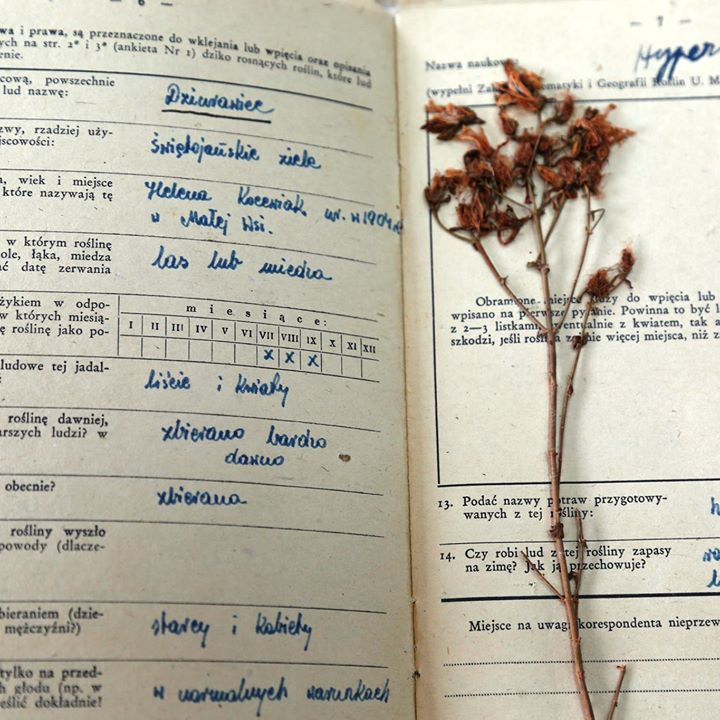 — 6 —
wa i prawa, są przeznaczone do wklejania lub wpięcia oraz opisania
ych na str. 2* i 3* (ankieta Nr 1) dziko rosnących roślin, które lud
enie.
cową, powszechnie
lud nazwę:
Dziurawiec
zwy, rzadziej uży-
jscowości:
świętojańskie ziele
a, wiek i miejsce
które nazywają tę
Helena Kocewiak ur. w 1904 r
w Małej Wsi.
w którym roślinę
ole, łąka, miedza
ać datę zerwania
las lub miedza
żykiem w odpo-
w których miesią-
ę roślinę jako po-
miesiące:
I II III IV V VI VII VIII IX X XI XII
x x x
ludowe tej jadal-
liście i kwiaty
roślinę dawniej,
arszych ludzi? w
zbierano bardzo
dawno
obecnie?
zbierana
rośliny wyszło
powody (dlacze-
bieraniem (dzie-
mężczyźni?)
starcy i kobiety
tylko na przed-
h głodu (np. w
eślić dokładnie!
w normalnych warunkach
— 7 —
Nazwa naukow
Hyper
(wypełni Zak ematyki i Geografii Roślin U. M
Obramo miejsce służy do wpięcia lub
wpisano na pierwsze py anie. Powinna to być l
z 2—3 listkami, ewentualnie z kwiatem, tak a
szkodzi, jeśli rośl a z nie więcej miejsca, niż z
13. Podać nazwy potraw przygotowy-
wanych z tej rośliny:
14. Czy robi lud z tej rośliny zapasy
na zimę? Jak ją przechowuje?
Miejsce na uwagi korespondenta nieprzew